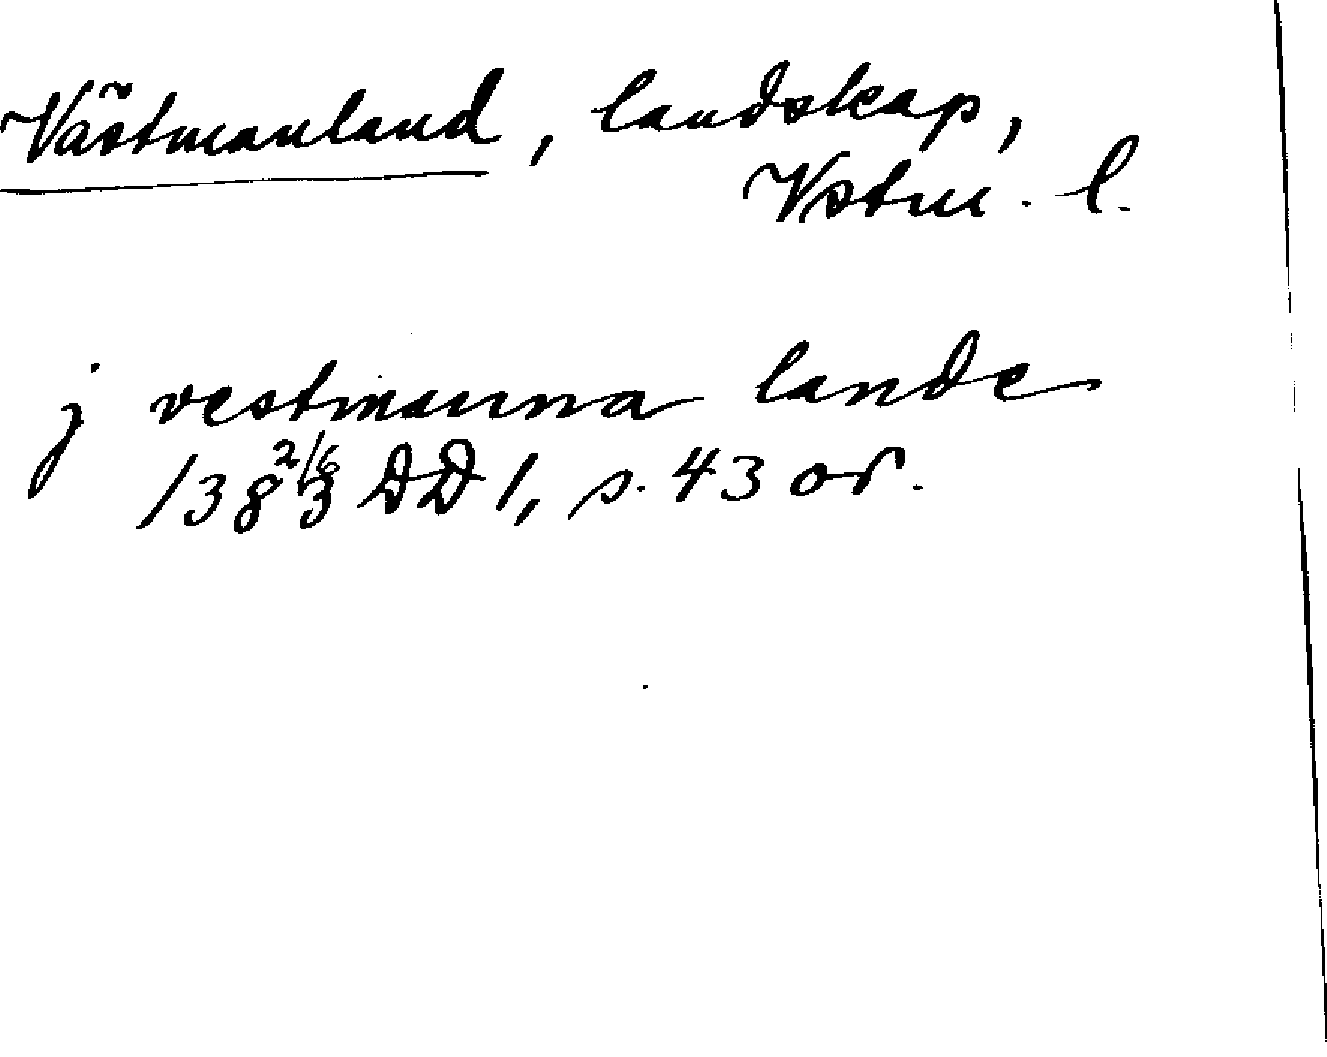 Västmanland, landskap,
Vstm. l.
j vestmanna lande
1383 2/6 DD 1, s. 43 or.